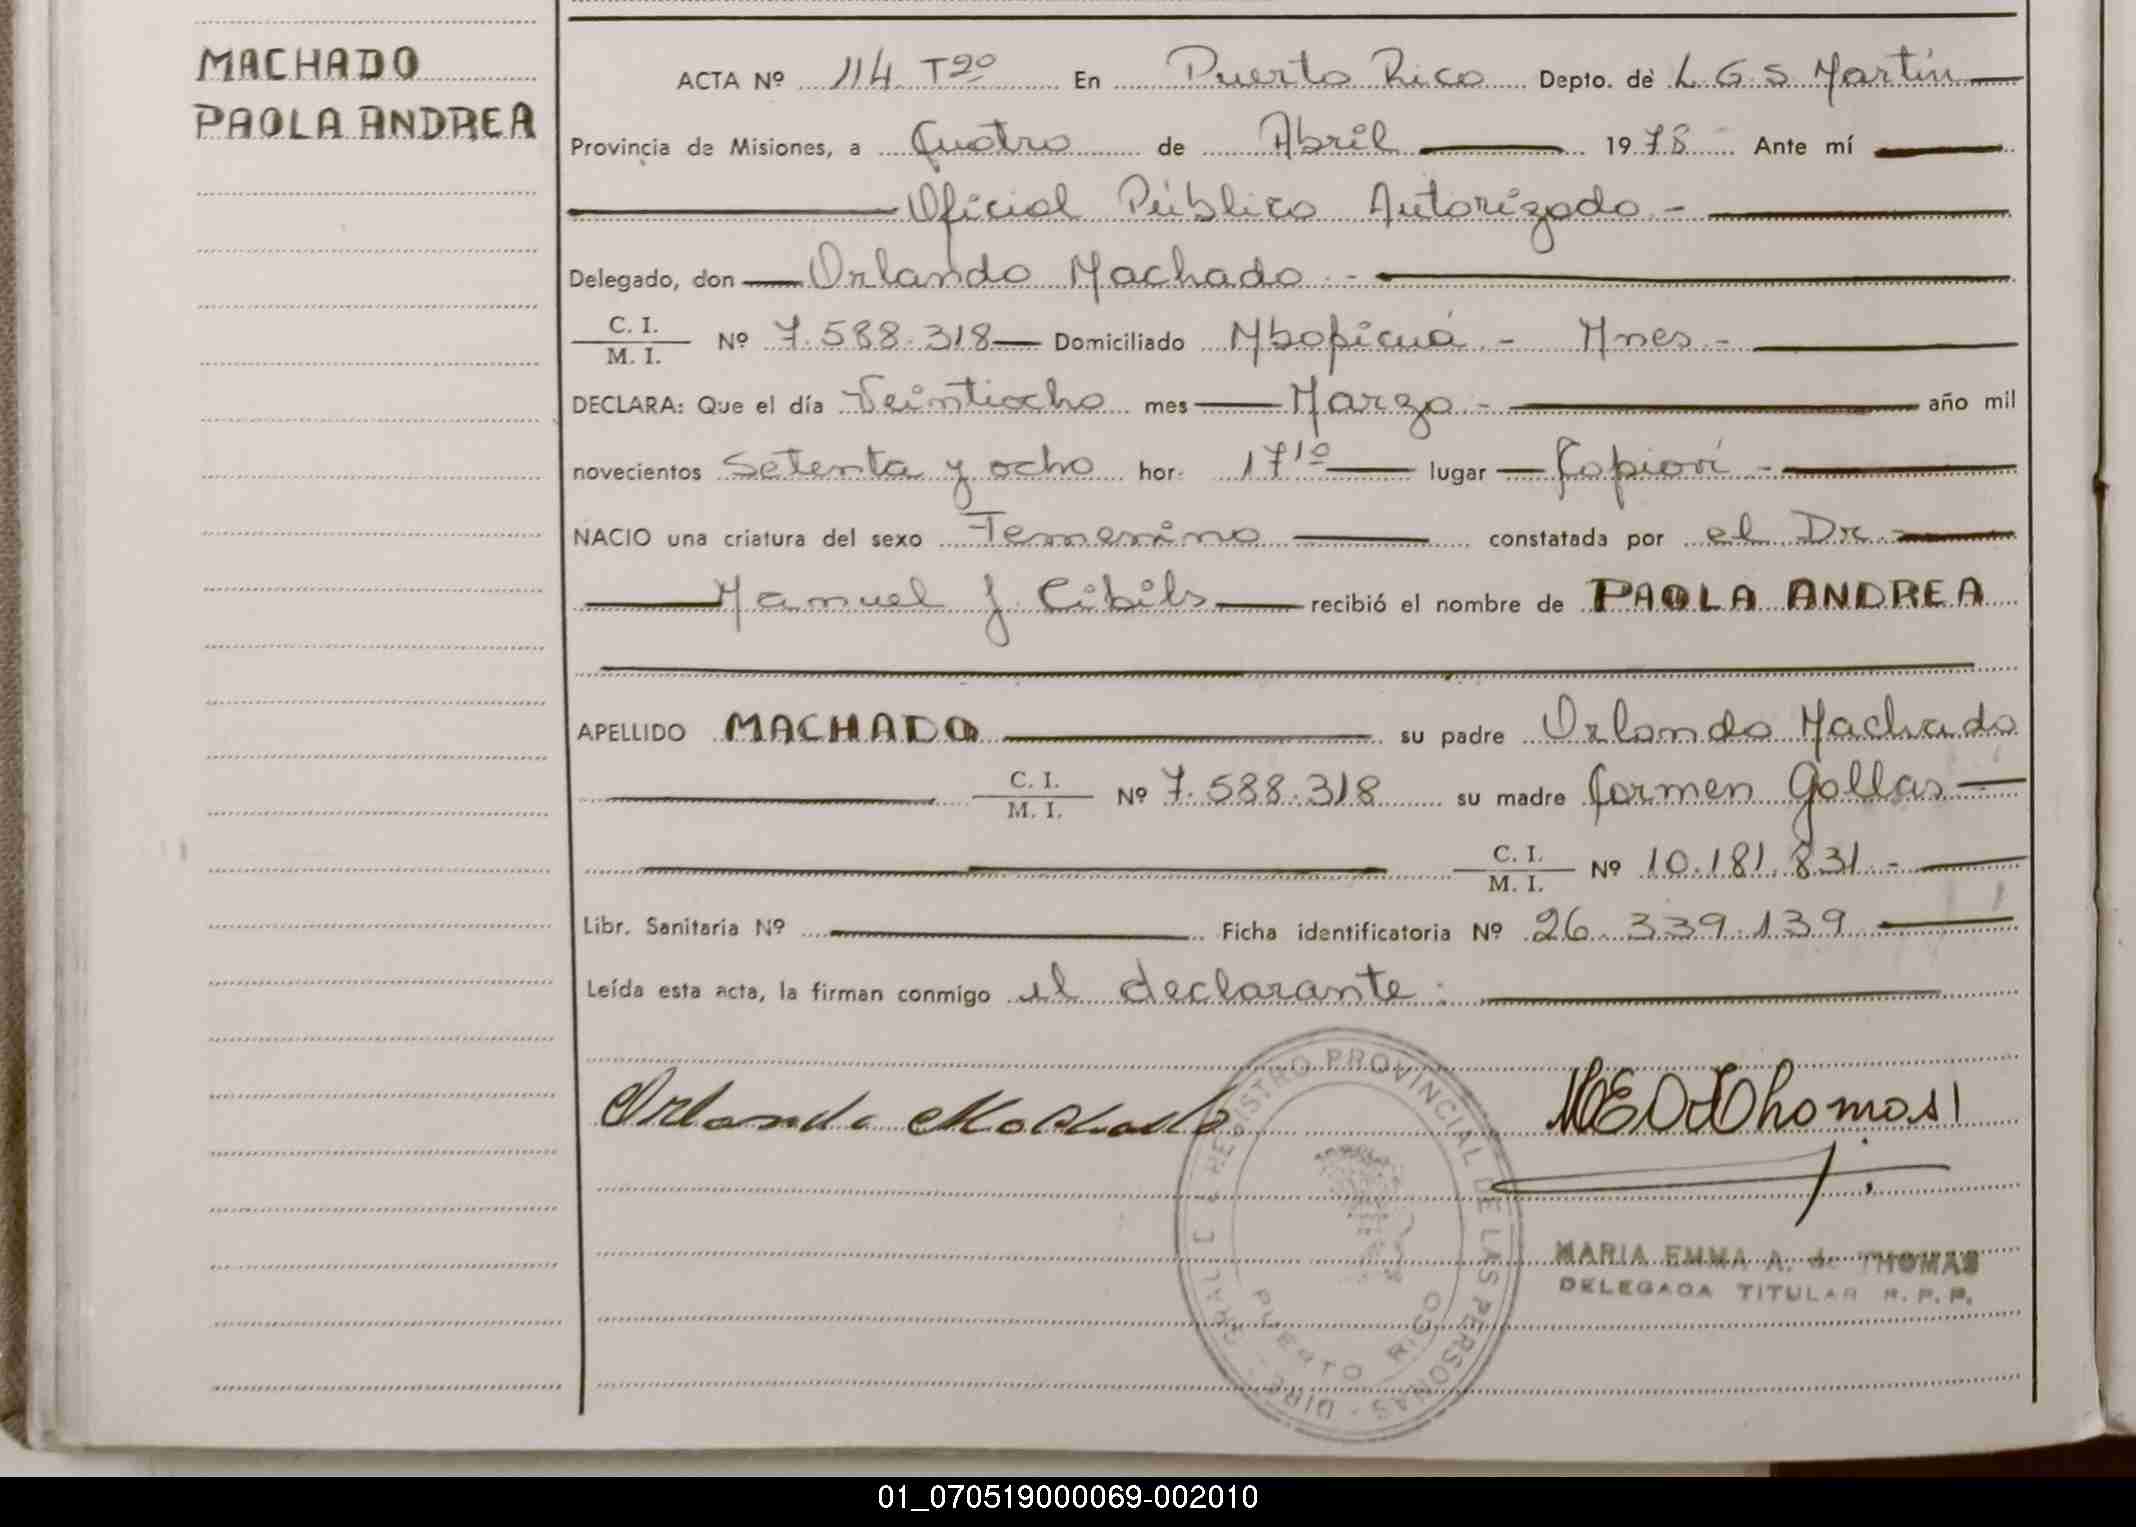 MACHADO
PAOLA ANDREA
ACTA Nº 114 Tº2º En Puerto Rico Depto. de L. G. S. Martín
Provincia de Misiones, a Cuatro de Abril 1978 Ante mí
Oficial Público Autorizado -
Delegado, don Orlando Machado -
C. I.
M. I. Nº 7.588.318 Domiciliado Mbopicuá - Mnes -
DECLARA: Que el día Veintiocho mes Marzo - año mil
novecientos Setenta y ocho hor. 17¹⁰ lugar Capioví -
NACIO una criatura del sexo Femenino constatada por el Dr.
Manuel J. Cibils recibió el nombre de PAOLA ANDREA
APELLIDO MACHADO su padre Orlando Machado
C. I.
M. I. Nº 7.588.318 su madre Carmen Gollas
C. I.
M. I. Nº 10.181.831 -
Libr. Sanitaria Nº Ficha identificatoria Nº 26.339.139
Leída esta acta, la firman conmigo el declarante.
Orlando Machado
REGISTRO PROVINCIAL DE LAS PERSONAS - DIRE. GRAL.
PUERTO RICO
MARIA EMMA A. de THOMAS
DELEGADA TITULAR R. P. P.
01_070519000069-002010